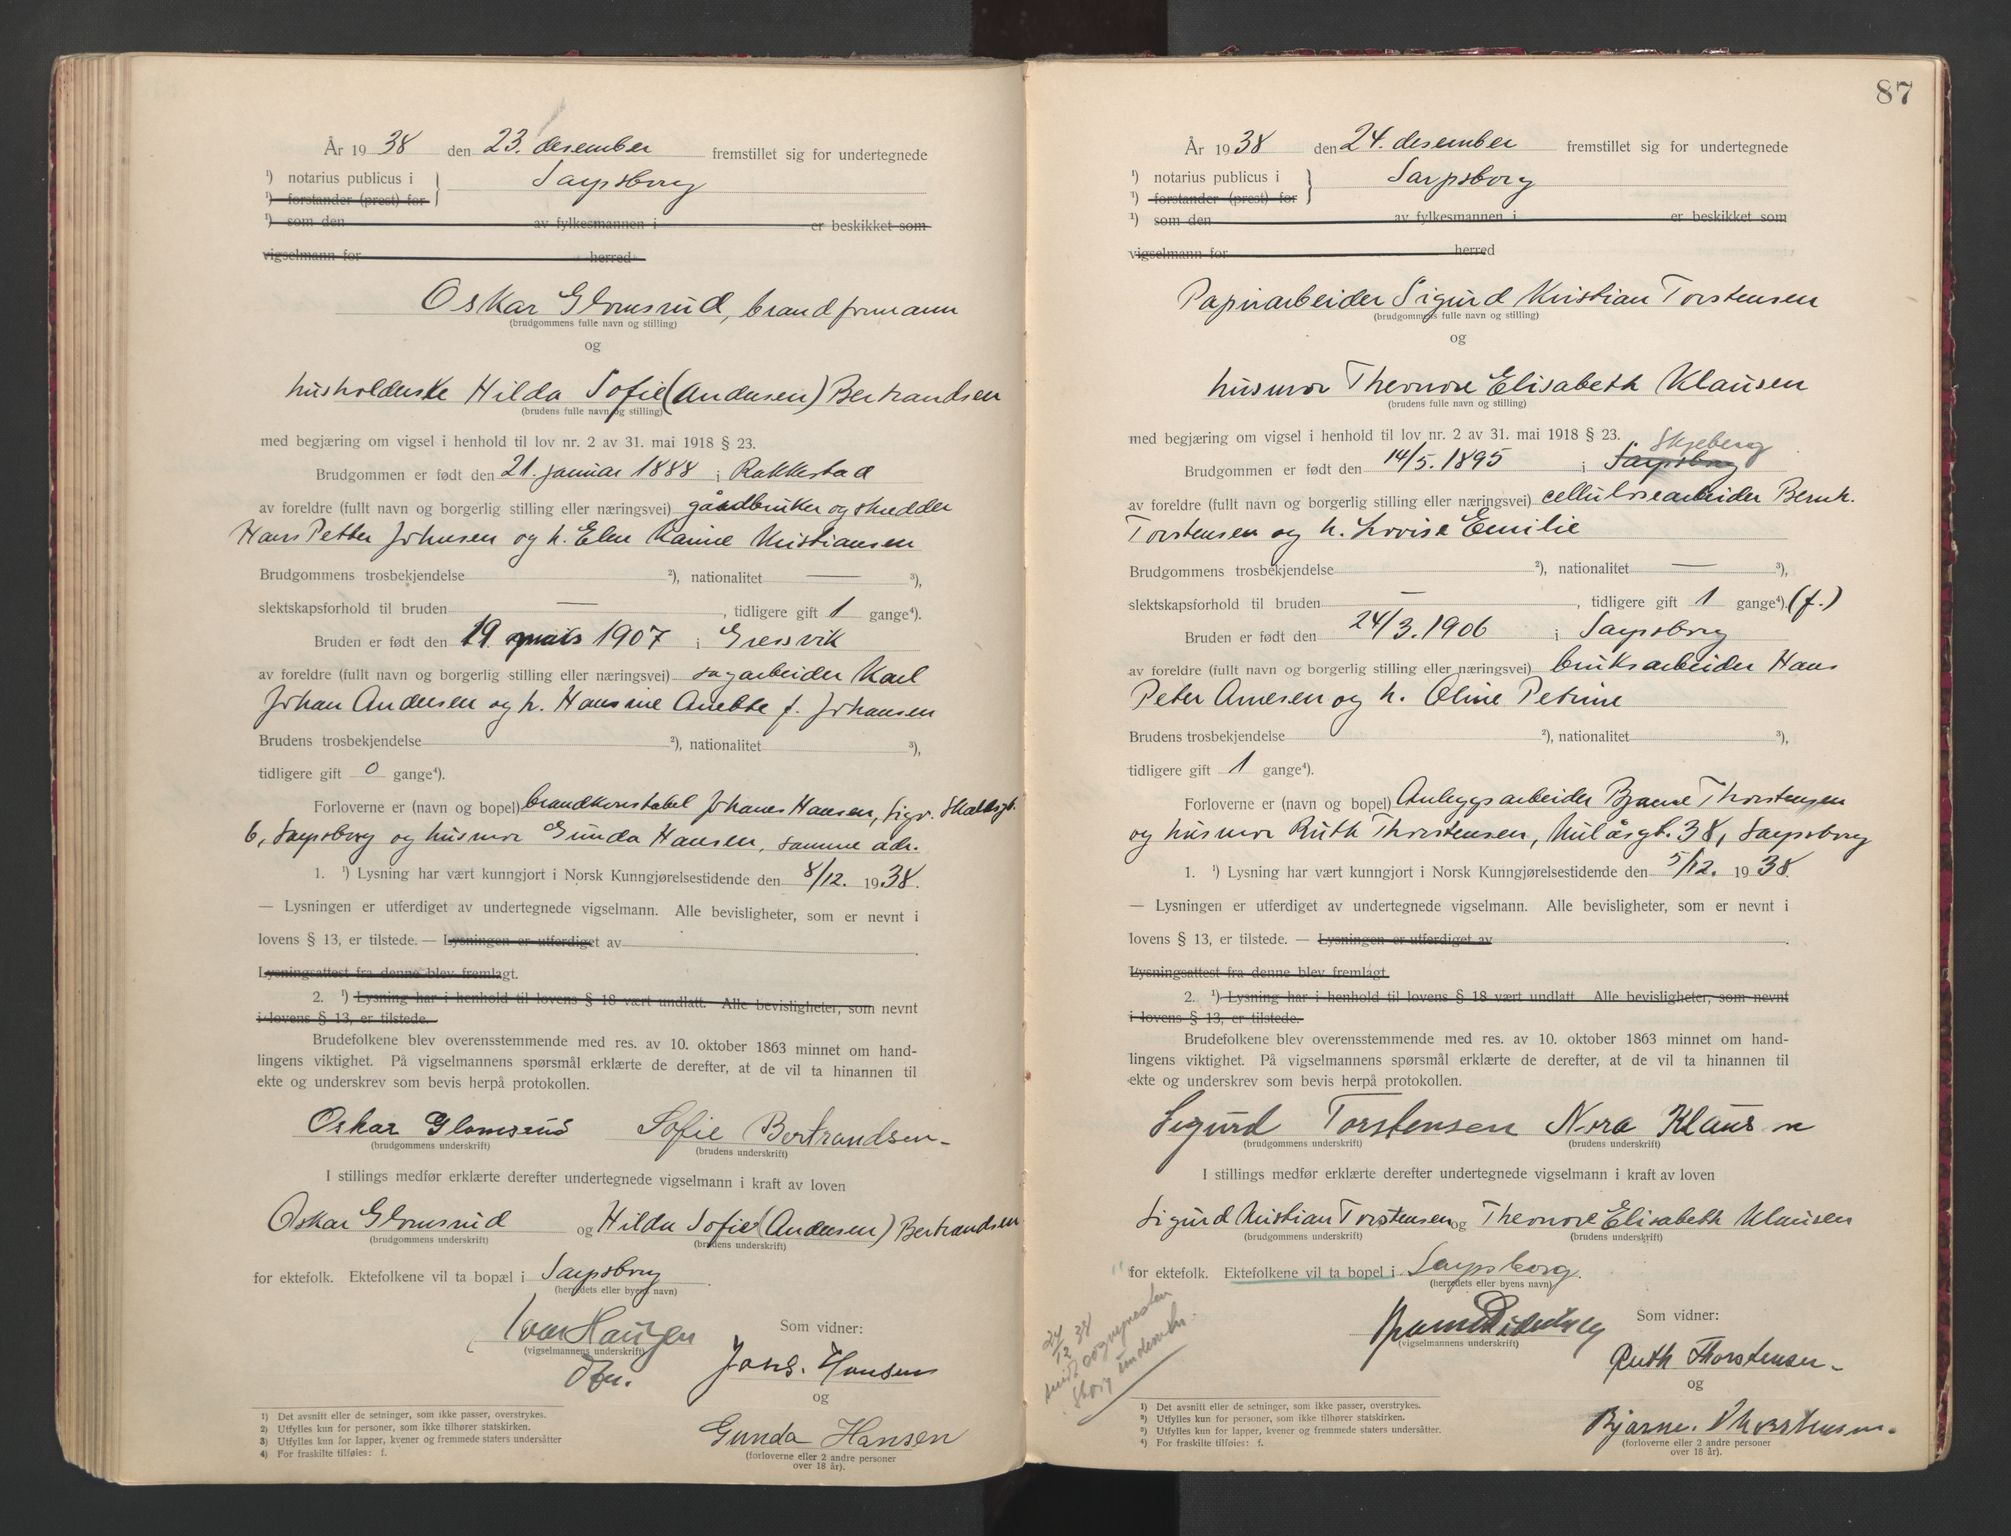 År 1938 den 23. desember fremstillet sig for undertegnede
¹) notarius publicus i } Sarpsborg
¹) forstander (prest) for
¹) som den av fylkesmannen i er beskikket som
vigselmann for herred
Oskar Glomsrud, brandformann
(brudgommens fulle navn og stilling)
og
husholderske Hilda Sofie (Andersen) Bertrandsen
(brudens fulle navn og stilling)
med begjæring om vigsel i henhold til lov nr. 2 av 31. mai 1918 § 23.
Brudgommen er født den 21. januar 1888 i Rakkestad
av foreldre (fullt navn og borgerlig stilling eller næringsvei) gårdbruker og skredder
Hans Petter Johnsen og h. Elen Karine Kristiansen
Brudgommens trosbekjendelse ²), nationalitet — ³),
slektskapsforhold til bruden — , tidligere gift 1 gange⁴).
Bruden er født den 19. mars 1907 i Gressvik
av foreldre (fullt navn og borgerlig stilling eller næringsvei) sagarbeider Karl
Johan Andersen og h. Hansine Anette f. Johansen
Brudens trosbekjendelse ²), nationalitet ³),
tidligere gift 0 gange⁴).
Forloverne er (navn og bopel) brandkonstabel Johanes Hansen, Sigv. Skaldsgt.
6, Sarpsborg og husmor Gunda Hansen, samme adr.
1. ¹) Lysning har vært kunngjort i Norsk Kunngjørelsestidende den 8/12. 1938.
— Lysningen er utferdiget av undertegnede vigselmann. Alle bevisligheter, som er nevnt i
lovens § 13, er tilstede. — Lysningen er utferdiget av
Lysningsattest fra denne blev fremlagt.
2. ¹) Lysning har i henhold til lovens § 18 vært undlatt. Alle bevisligheter, som nevnt
i lovens § 13, er tilstede.
Brudefolkene blev overensstemmende med res. av 10. oktober 1863 minnet om hand-
lingens viktighet. På vigselmannens spørsmål erklærte de derefter, at de vil ta hinannen til
ekte og underskrev som bevis herpå protokollen.
Oskar Glomsrud Sofie Bertrandsen
(brudgommens underskrift) (brudens underskrift)
I stillings medfør erklærte derefter undertegnede vigselmann i kraft av loven
Oskar Glomsrud og Hilda Sofie (Andersen) Bertrandsen
(brudgommens underskrift) (brudens underskrift)
for ektefolk. Ektefolkene vil ta bopæl i Sarpsborg
(herredets eller byens navn)
Ivar Haugen Som vidner:
(vigselmannens underskrift)
Johs. Hansen
og
Gunda Hansen
(forloverne eller 2 andre personer
over 18 år).
1) Det avsnitt eller de setninger, som ikke passer, overstrykes.
2) Utfylles kun for personer, som ikke tilhører statskirken.
3) Utfylles kun for lapper, kvener og fremmede staters undersåtter
4) For fraskilte tilføies: f.
87
År 1938 den 24. desember fremstillet sig for undertegnede
¹) notarius publicus i } Sarpsborg
¹) forstander (prest) for
¹) som den av fylkesmannen i er beskikket som
vigselmann for herred
Papirarbeider Sigurd Kristian Torstensen
(brudgommens fulle navn og stilling)
og
husmor Theonore Elisabeth Klausen
(brudens fulle navn og stilling)
med begjæring om vigsel i henhold til lov nr. 2 av 31. mai 1918 § 23.
Skjeberg
Brudgommen er født den 14/5. 1895 i Sarpsborg
av foreldre (fullt navn og borgerlig stilling eller næringsvei) cellulosearbeider Bernh.
Torstensen og h. Lovise Emilie
Brudgommens trosbekjendelse ²), nationalitet — ³),
slektskapsforhold til bruden — , tidligere gift 1 gange⁴). (f.)
Bruden er født den 24/3. 1906 i Sarpsborg
av foreldre (fullt navn og borgerlig stilling eller næringsvei) bruksarbeider Hans
Peter Arnesen og h. Oline Petrine
Brudens trosbekjendelse ²), nationalitet ³),
tidligere gift 1 gange⁴).
Forloverne er (navn og bopel) Anleggsarbeider Bjarne Thorstensen
og husmor Ruth Thorstensen, Kulåsgt. 38, Sarpsborg
1. ¹) Lysning har vært kunngjort i Norsk Kunngjørelsestidende den 5/12. 1938.
— Lysningen er utferdiget av undertegnede vigselmann. Alle bevisligheter, som er nevnt i
lovens § 13, er tilstede. — Lysningen er utferdiget av
Lysningsattest fra denne blev fremlagt
2. ¹) Lysning har i henhold til lovens § 18 vært undlatt. Alle bevisligheter, som nevnt
i lovens § 13, er tilstede.
Brudefolkene blev overensstemmende med res. av 10. oktober 1863 minnet om hand-
lingens viktighet. På vigselmannens spørsmål erklærte de derefter, at de vil ta hinannen til
ekte og underskrev som bevis herpå protokollen.
Sigurd Torstensen Nora Klausen
(brudgommens underskrift) (brudens underskrift)
I stillings medfør erklærte derefter undertegnede vigselmann i kraft av loven
Sigurd Kristian Torstensen og Theonore Elisabeth Klausen
(brudgommens underskrift) (brudens underskrift)
for ektefolk. Ektefolkene vil ta bopel i Sarpsborg.
(herredets eller byens navn)
24/12 38
Som vidner:
(vigselmannens underskrift)
Ruth Thorstensen
og
Bjarne Thorstensen
(forloverne eller 2 andre personer
over 18 år).
¹) Det avsnitt eller de setninger, som ikke passer, overstrykes.
²) Utfylles kun for personer, som ikke tilhører statskirken.
³) Utfylles kun for lapper, kvener og fremmede staters undersåtter.
⁴) For fraskilte tilføies: f.